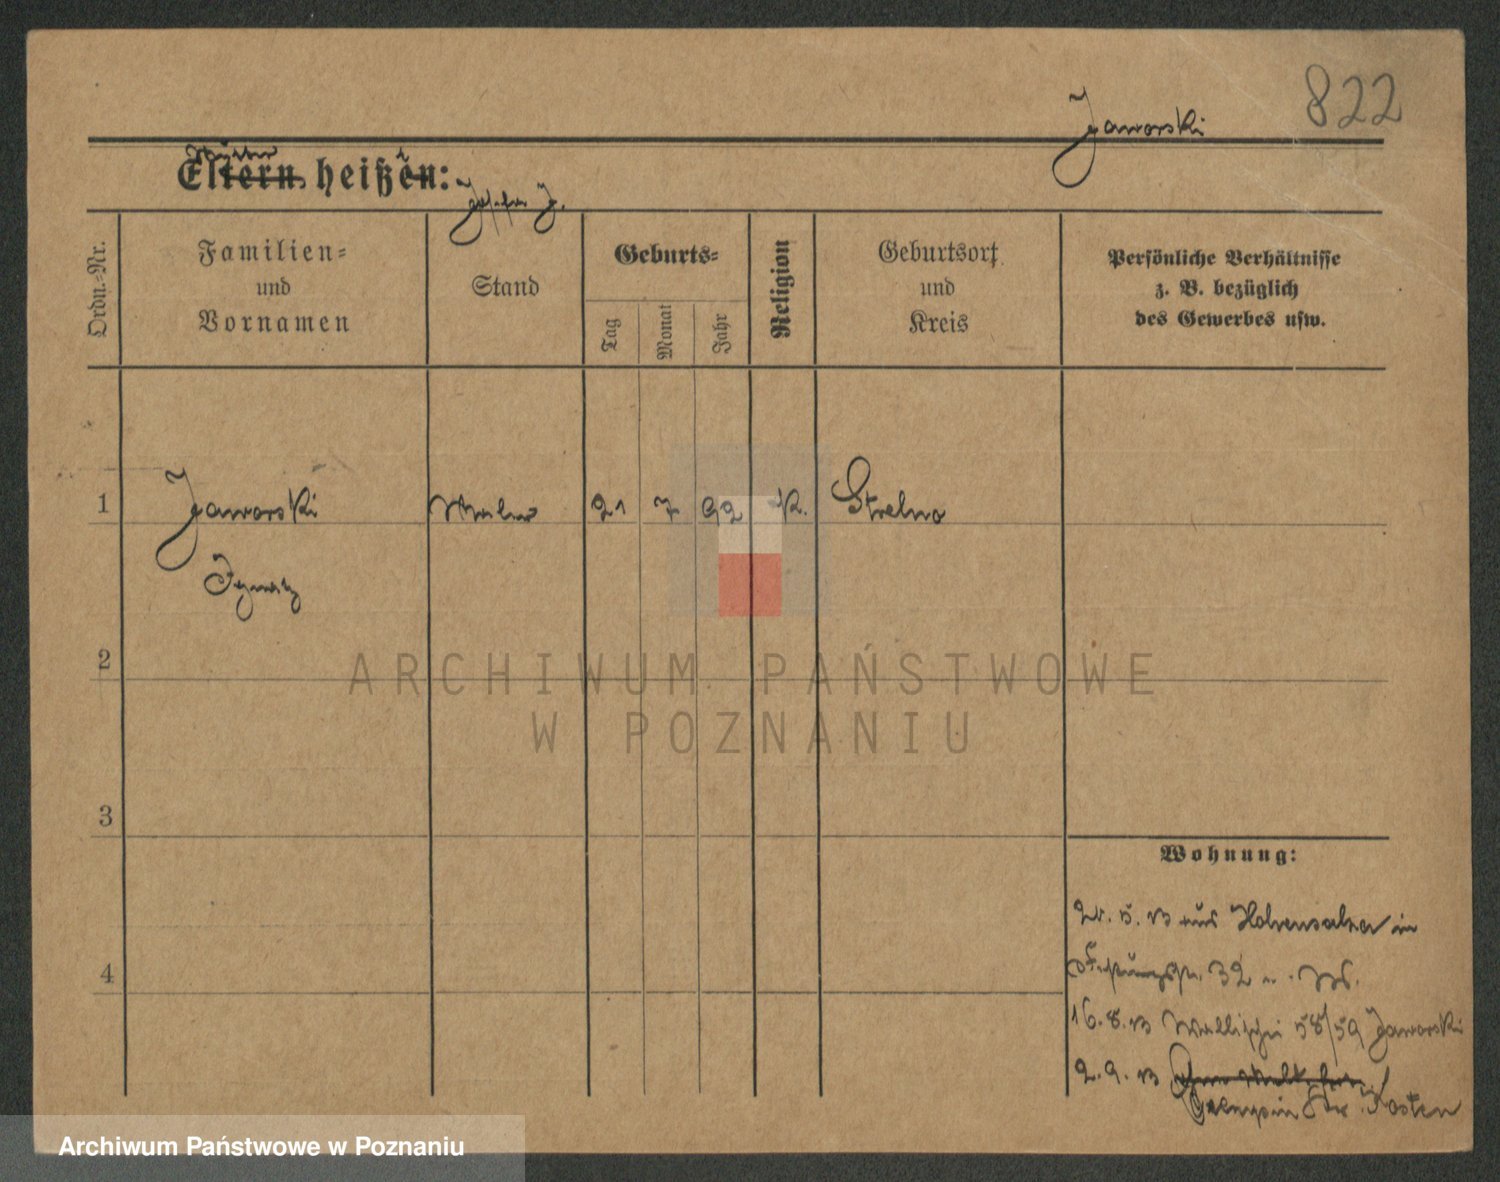 822
Jaworski
Mutter
Eltern heißen:
Josefa J.
Ordn.-Nr.
Familien-
und
Vornamen
Stand
Geburts-
Tag
Monat
Jahr
Religion
Geburtsort
und
Kreis
Persönliche Verhältnisse
z. B. bezüglich
des Gewerbes usw.
1
Jaworski
Maler
21
7
92
K.
Strelno
Ignatz
2
ARCHIWUM PAŃSTWOWE
W POZNANIU
3
Wohnung:
5. 13 aus Hohensalza in
4
32
16. 8. 13 Wallischei 58/59 Jaworski
2. 9. 13
Kr. Kosten
Archiwum Państwowe w Poznaniu